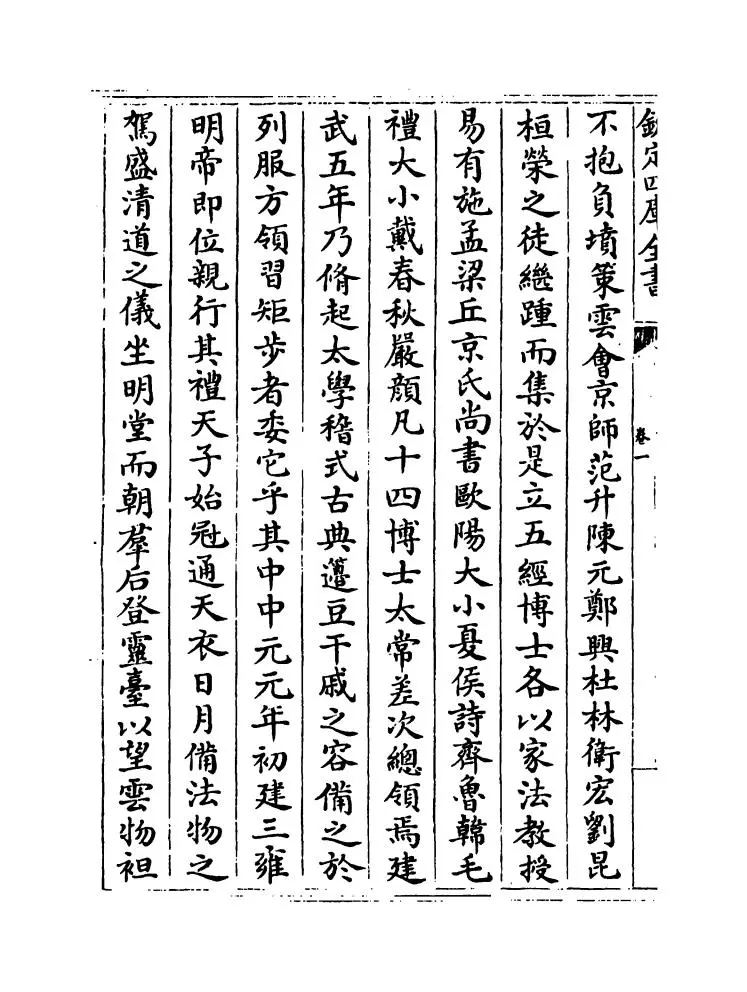 欽定四庫全書
卷一
不抱負墳策雲會京師范升陳元鄭興杜林衛宏劉昆
桓榮之徒繼踵而集於是立五經博士各以家法教授
易有施孟梁丘京氏尚書歐陽大小夏侯詩齊魯韓毛
禮大小戴春秋嚴顔凡十四博士太常差次總領焉建
武五年乃脩起太學稽式古典籩豆干戚之容備之於
列服方領習矩步者委它乎其中中元元年初建三雍
明帝即位親行其禮天子始冠通天衣日月備法物之
駕盛清道之儀坐明堂而朝羣后登靈臺以望雲物袒